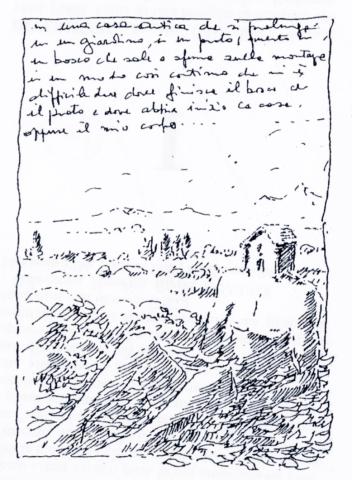 in una casa antica che si prolunga
in un giardino, in un prato, questo in
un bosco che sale e sfuma sulle montagne
in un modo così continuo che mi è
difficile dire dove finisce il bosco o
il prato e dove abbia inizio la casa,
oppure il mio corpo.....